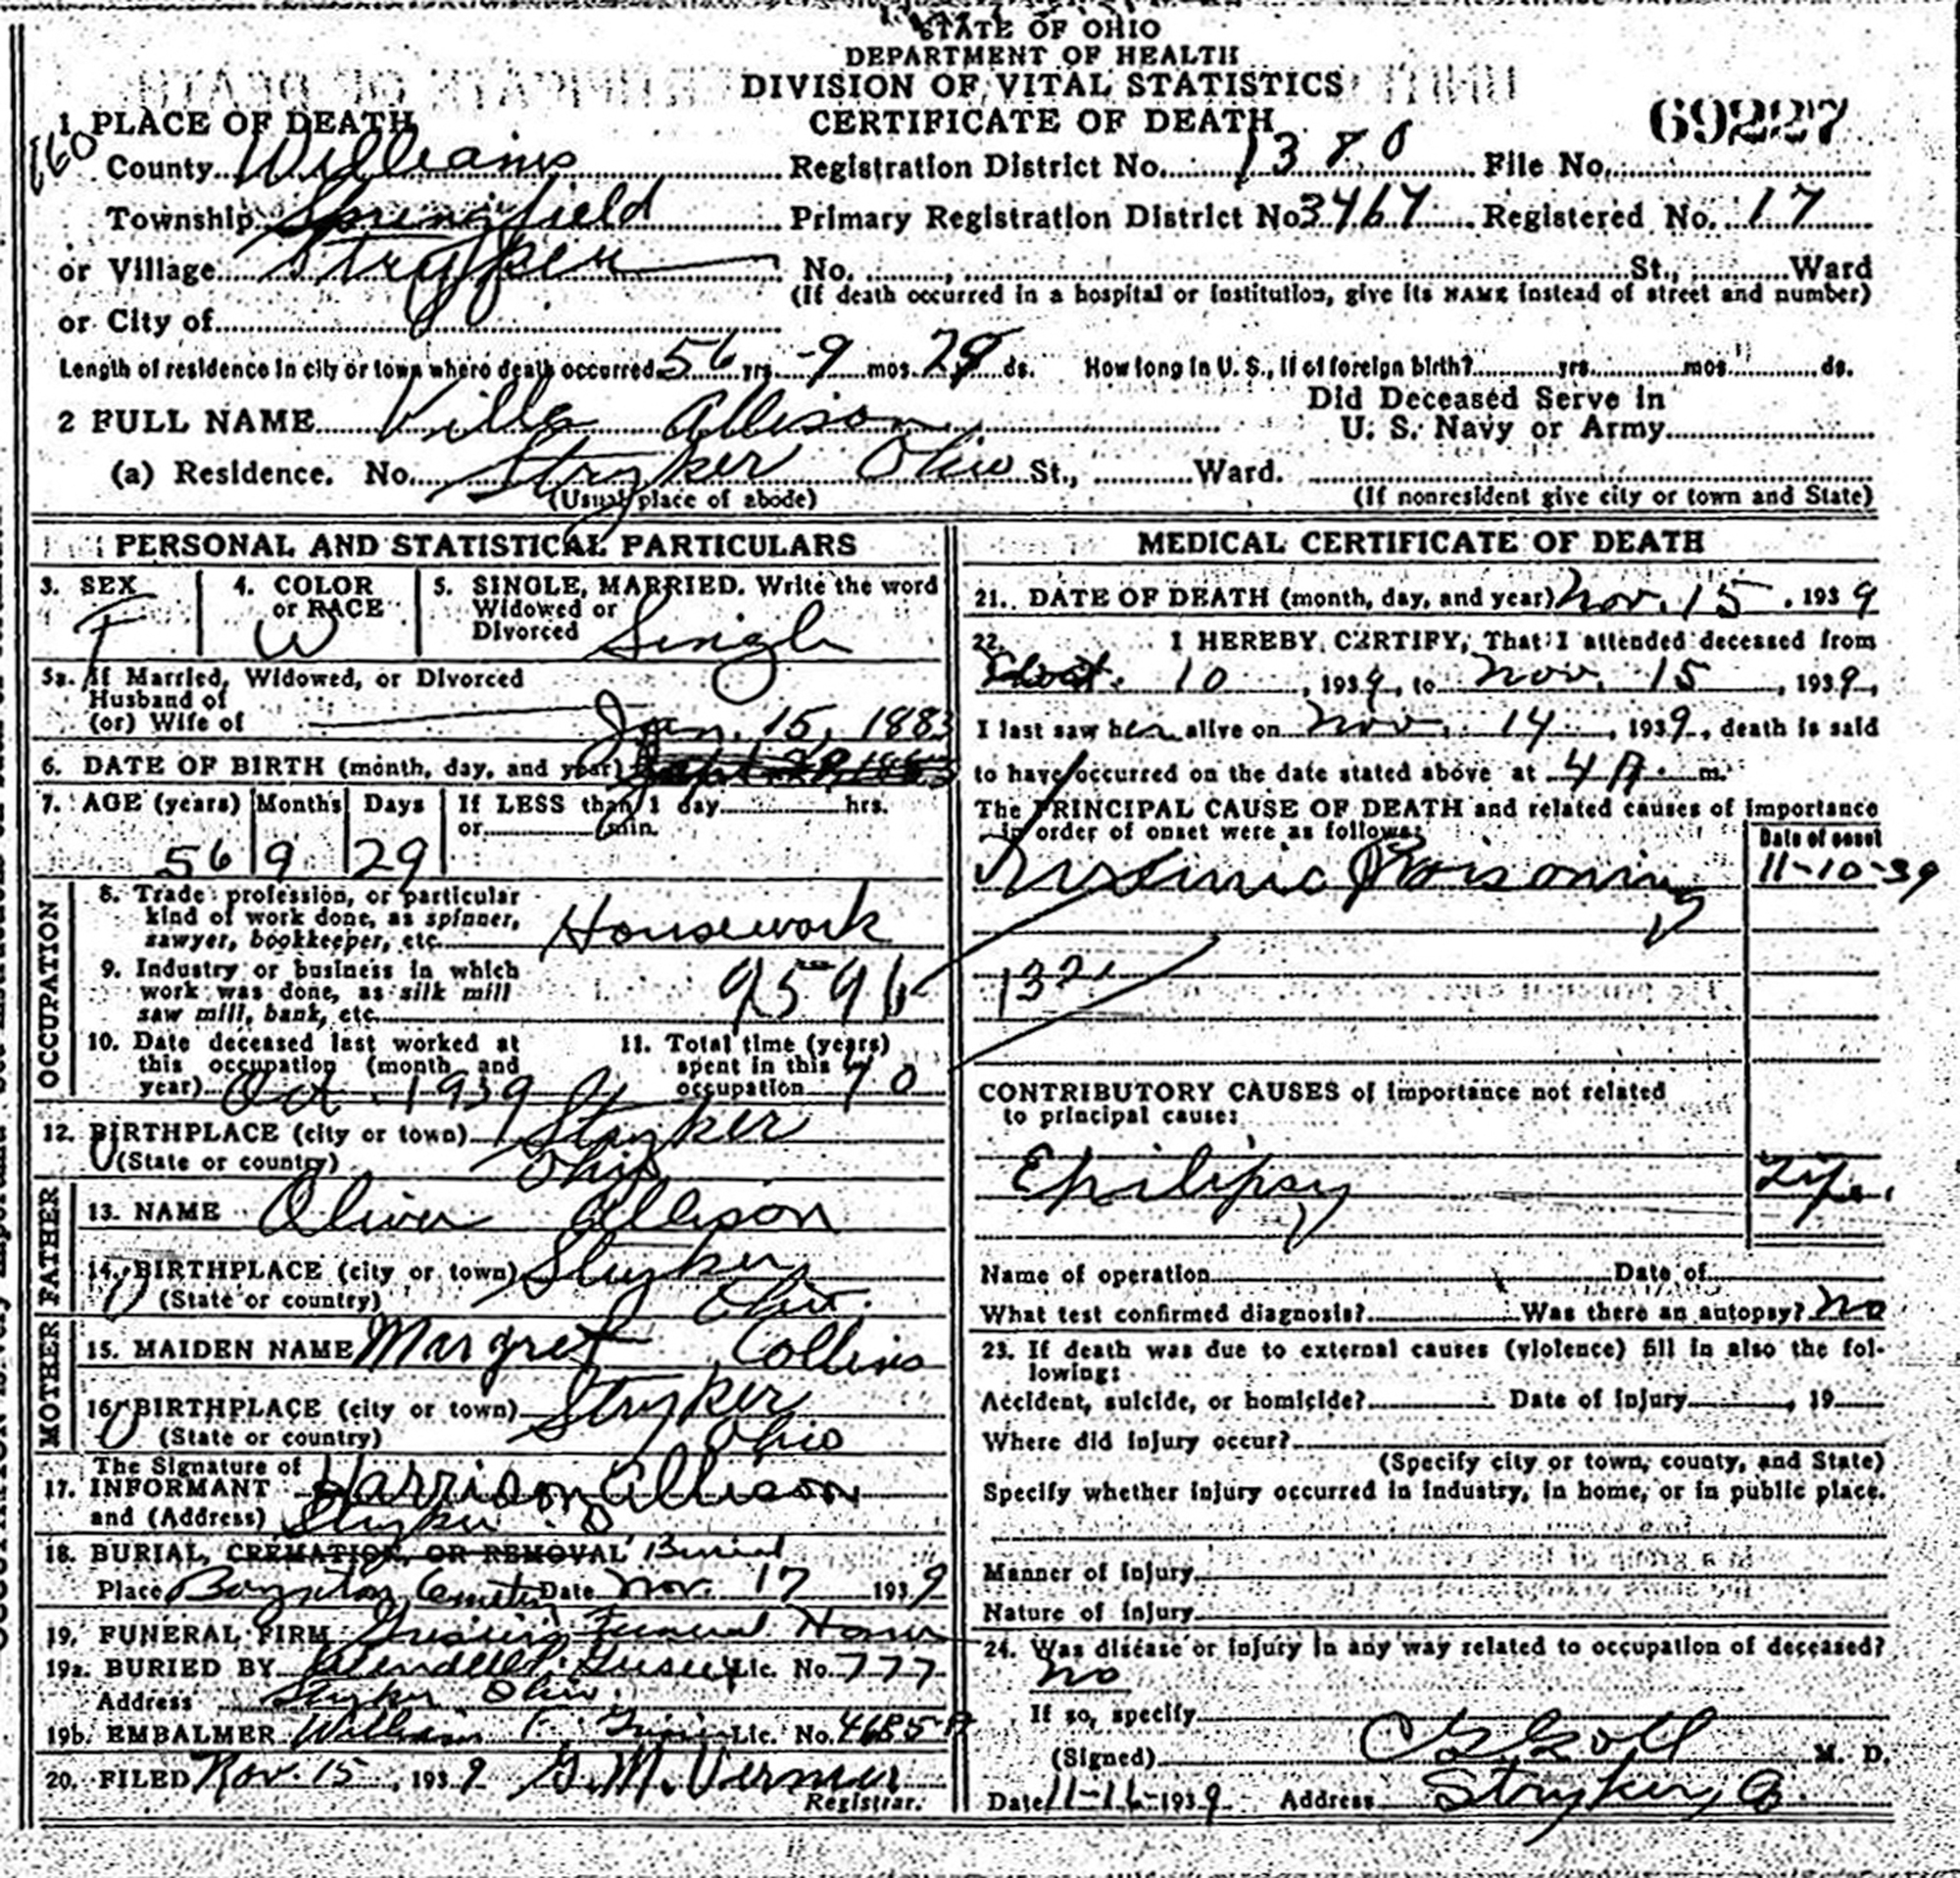 STATE OF OHIO
DEPARTMENT OF HEALTH
DIVISION OF VITAL STATISTICS
CERTIFICATE OF DEATH
69227
1 PLACE OF DEATH
County Williams Registration District No. 1380 File No.
Township Springfield Primary Registration District No 3467 Registered No. 17
or Village Stryker No. , St., Ward
(If death occurred in a hospital or institution, give its NAME instead of street and number)
or City of
Length of residence in city or town where death occurred 56 yrs. 9 mos. 29 ds. How long in U. S., if of foreign birth? yrs. mos. ds.
Did Deceased Serve in
2 FULL NAME Villa Allison U. S. Navy or Army
(a) Residence. No. Stryker Ohio St., Ward.
(Usual place of abode) (If nonresident give city or town and State)
PERSONAL AND STATISTICAL PARTICULARS
3. SEX 4. COLOR or RACE 5. SINGLE, MARRIED. Write the word
Widowed or
Divorced
F W Single
5a. If Married, Widowed, or Divorced
Husband of
(or) Wife of
Jan. 15, 1883
6. DATE OF BIRTH (month, day, and year)
7. AGE (years) Months Days If LESS than 1 day hrs.
or min.
56 9 29
OCCUPATION
8. Trade profession, or particular
kind of work done, as spinner,
sawyer, bookkeeper, etc. Housework
9. Industry or business in which
work was done, as silk mill
saw mill, bank, etc.
9596
10. Date deceased last worked at
this occupation (month and
year) Oct 1939
11. Total time (years)
spent in this
occupation 40
12. BIRTHPLACE (city or town) Stryker
(State or country) Ohio
FATHER
13. NAME Oliver Allison
14. BIRTHPLACE (city or town) Stryker
(State or country) Ohio.
MOTHER
15. MAIDEN NAME Margret Collins
16. BIRTHPLACE (city or town) Stryker
(State or country) Ohio
The Signature of
17. INFORMANT Harrison Allison
and (Address) Stryker O
18. BURIAL, CREMATION, OR REMOVAL Burial
Place Boynton Cemetery Date Nov. 17 1939
19. FUNERAL FIRM Funeral Home
19a. BURIED BY Lic. No. 777
Address Stryker Ohio.
19b. EMBALMER William F. Lic. No. 4685 A
20. FILED Nov. 15, 1939 G. M. Vernier
Registrar.
MEDICAL CERTIFICATE OF DEATH
21. DATE OF DEATH (month, day, and year) Nov. 15, 1939
22. I HEREBY CERTIFY, That I attended deceased from
10, 1939, to Nov. 15, 1939,
I last saw her alive on Nov. 14, 1939, death is said
to have occurred on the date stated above at 4 A. m.
The PRINCIPAL CAUSE OF DEATH and related causes of importance
in order of onset were as follows:
Date of onset
Uraemic Poisoning 11-10-39
132
CONTRIBUTORY CAUSES of importance not related
to principal cause:
Epilipsy Life.
Name of operation Date of
What test confirmed diagnosis? Was there an autopsy? no
23. If death was due to external causes (violence) fill in also the fol-
lowing:
Accident, suicide, or homicide? Date of injury , 19
Where did injury occur?
(Specify city or town, county, and State)
Specify whether injury occurred in industry, in home, or in public place.
Manner of Injury
Nature of Injury
24. Was disease or injury in any way related to occupation of deceased?
no
If so, specify
(Signed) M. D.
Date 11-16-1939 Address Stryker, O.